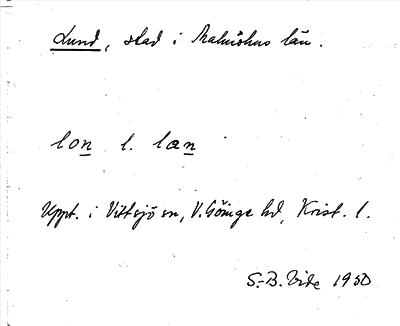 Lund, stad i Malmöhus län.
lon l. lan
Uppt. i Vittsjö sn, V. Göinge hd, Krist. l.
S.-B. Vide 1950